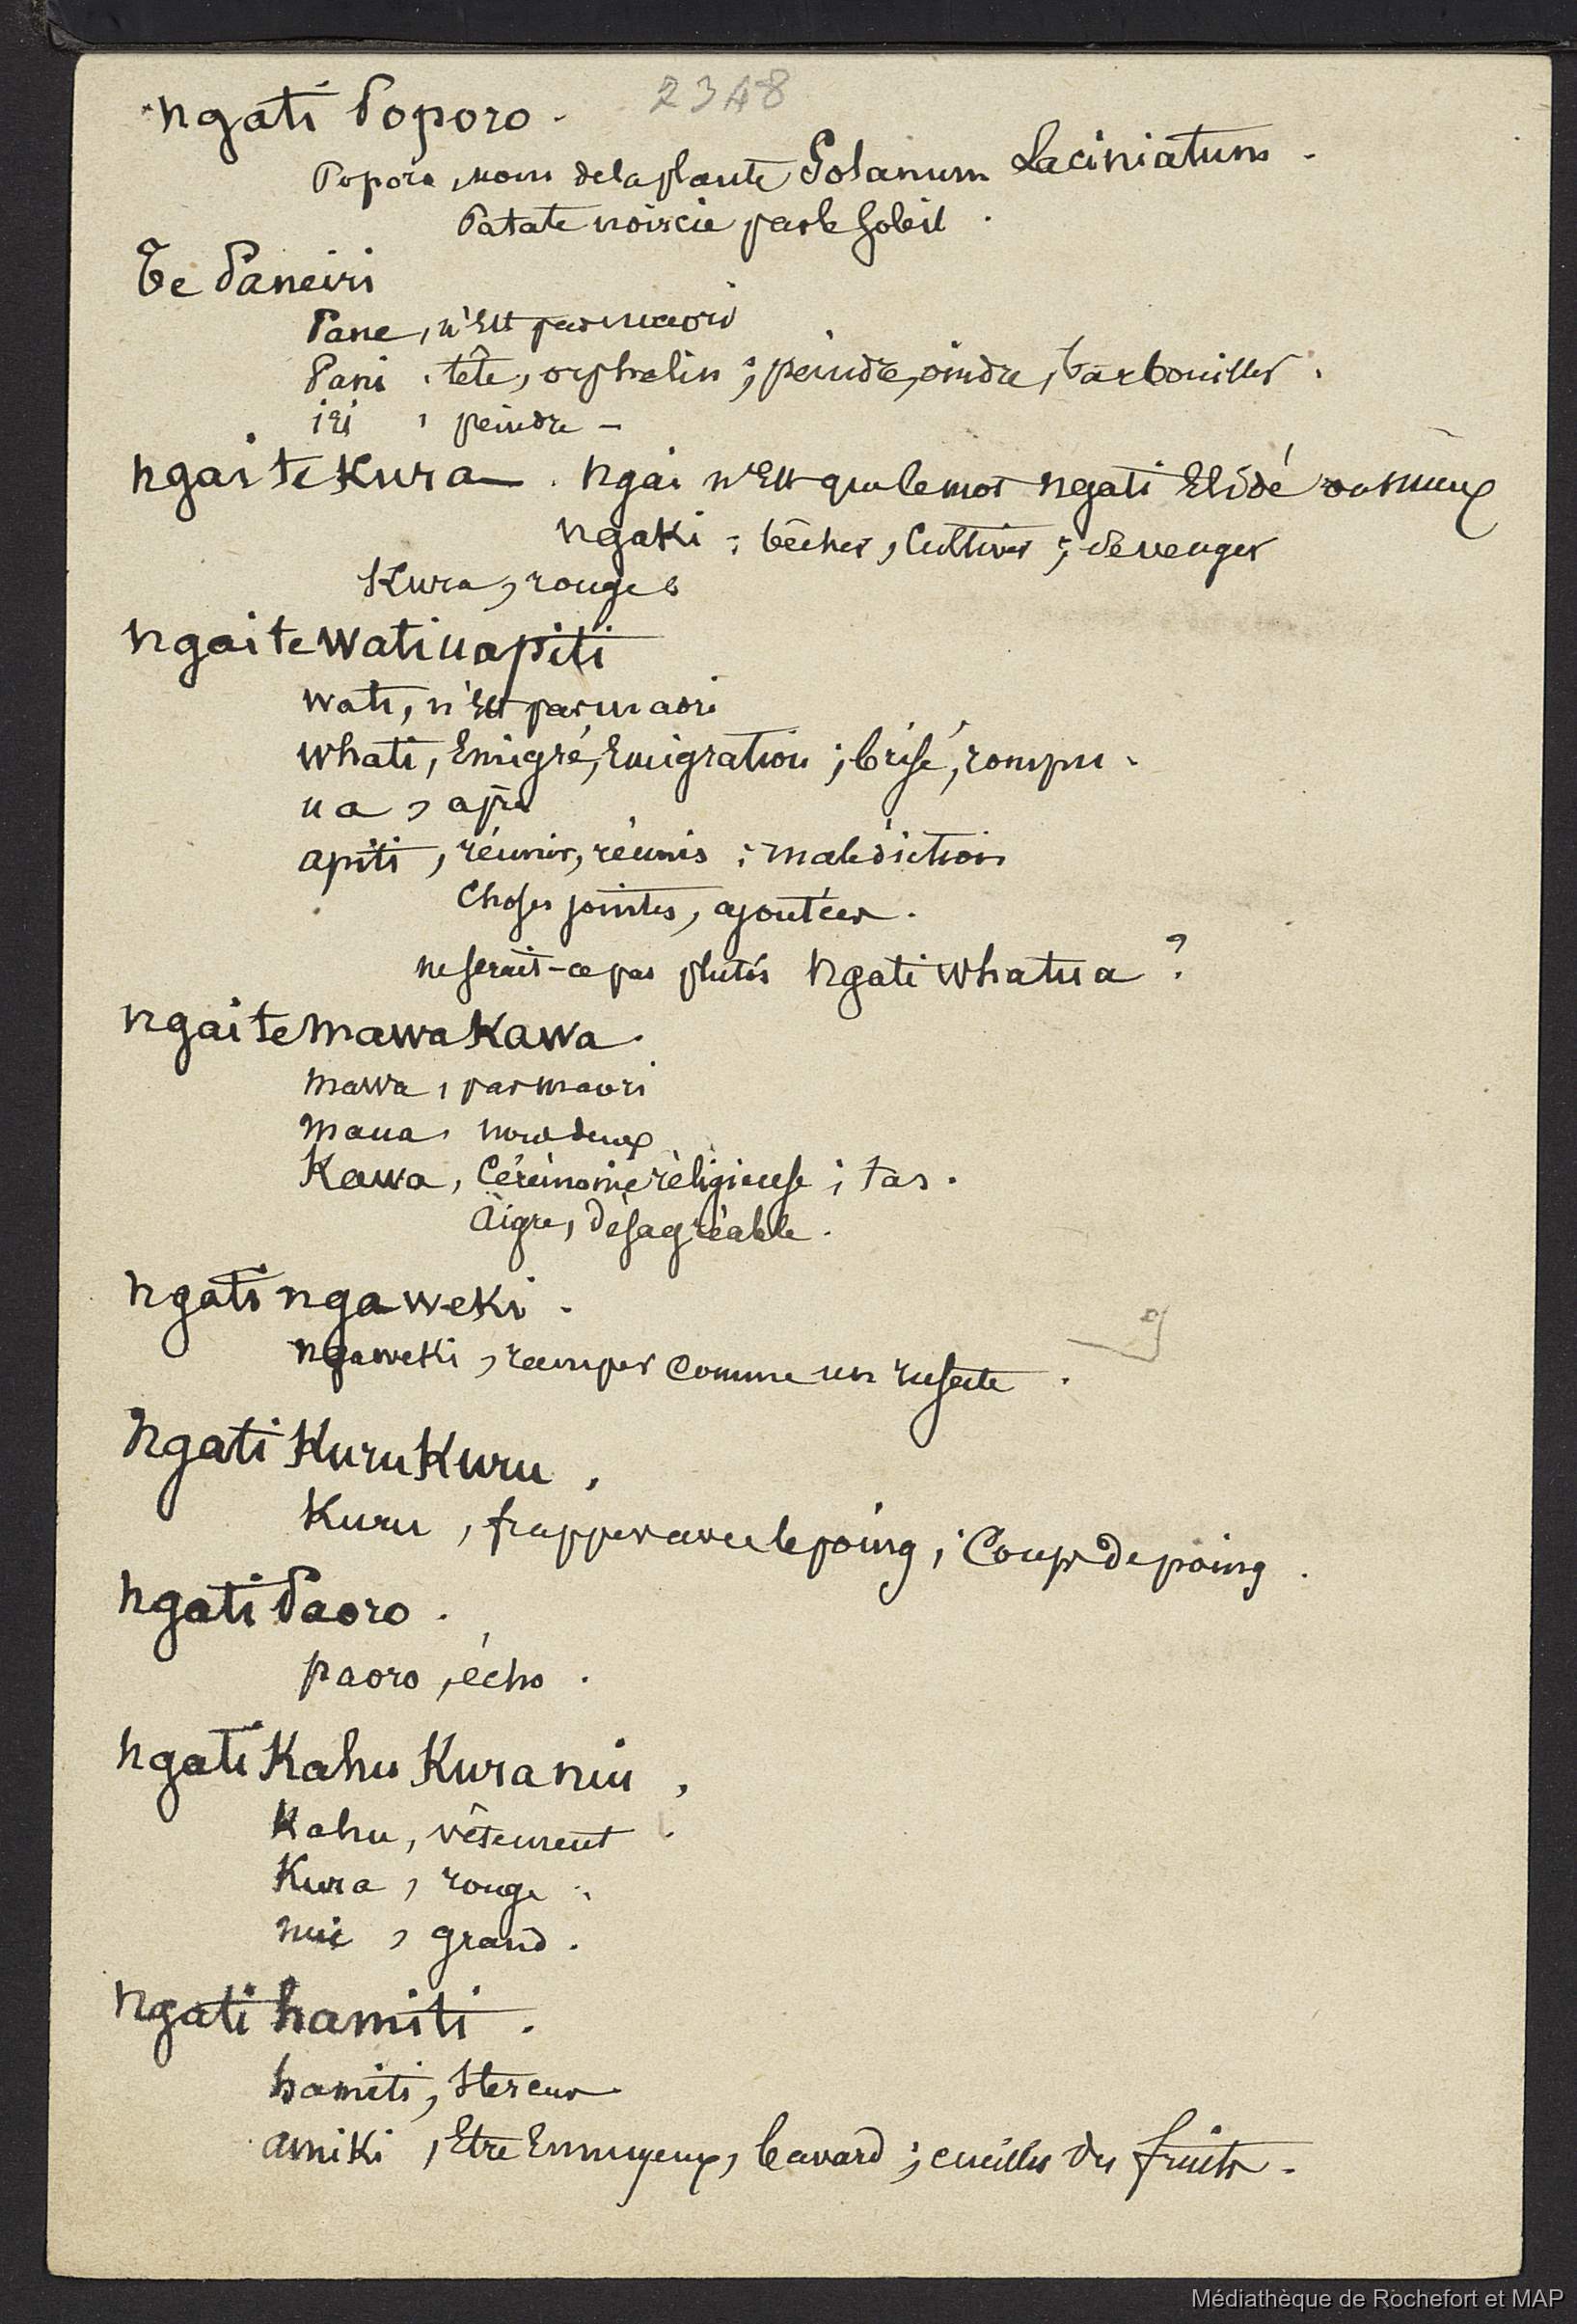 2348
ngati Poporo.
Poporo, nom de la plante Solanum Laciniatum.
Patate noircie par le Soleil.
Te Paneiri
Pane, n'Est pas maori
Pani, tête, orphelin; peindre, oindre, barbouiller.
iri, peindre -
ngai te Kura. ngai n'Est que le mot ngati Elidé ou mieux
ngaki; bêcher, Cultiver; se venger
Kura, rouge
ngai te Watiuapiti
wati, n'Est pas maori
whati, Emigré, Emigration; brisé, rompu.
ua,
apiti, réunir, réunis; malédiction
Choses jointes, ajoutées.
ne serait-ce pas plutôt ngati whatua?
ngai te mawa Kawa.
mawa, pas maori
maua, nous deux
Kawa, Cérémonie réligieuse; tas.
Aigre, désagréable.
ngati ngaweki.
ngaweki, ramper Comme un insecte.
ngati KuruKuru,
Kuru, frapper avec le poing; Coup de poing.
ngati Paoro.
paoro, écho.
ngati Kahu Kura nui,
Kahu, vêtement.
Kura, rouge.
nui, grand.
ngati hamiti.
hamiti,
amiki, Etre Ennuyeux, bavard; cueillir des fruits.
Médiathèque de Rochefort et MAP